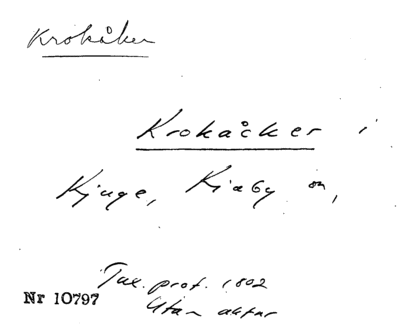 Krokåker
Krokåcker i
Kjuge, Kiaby sn,
Tax. prot. 1802
Nr 10797
Utan aktnr